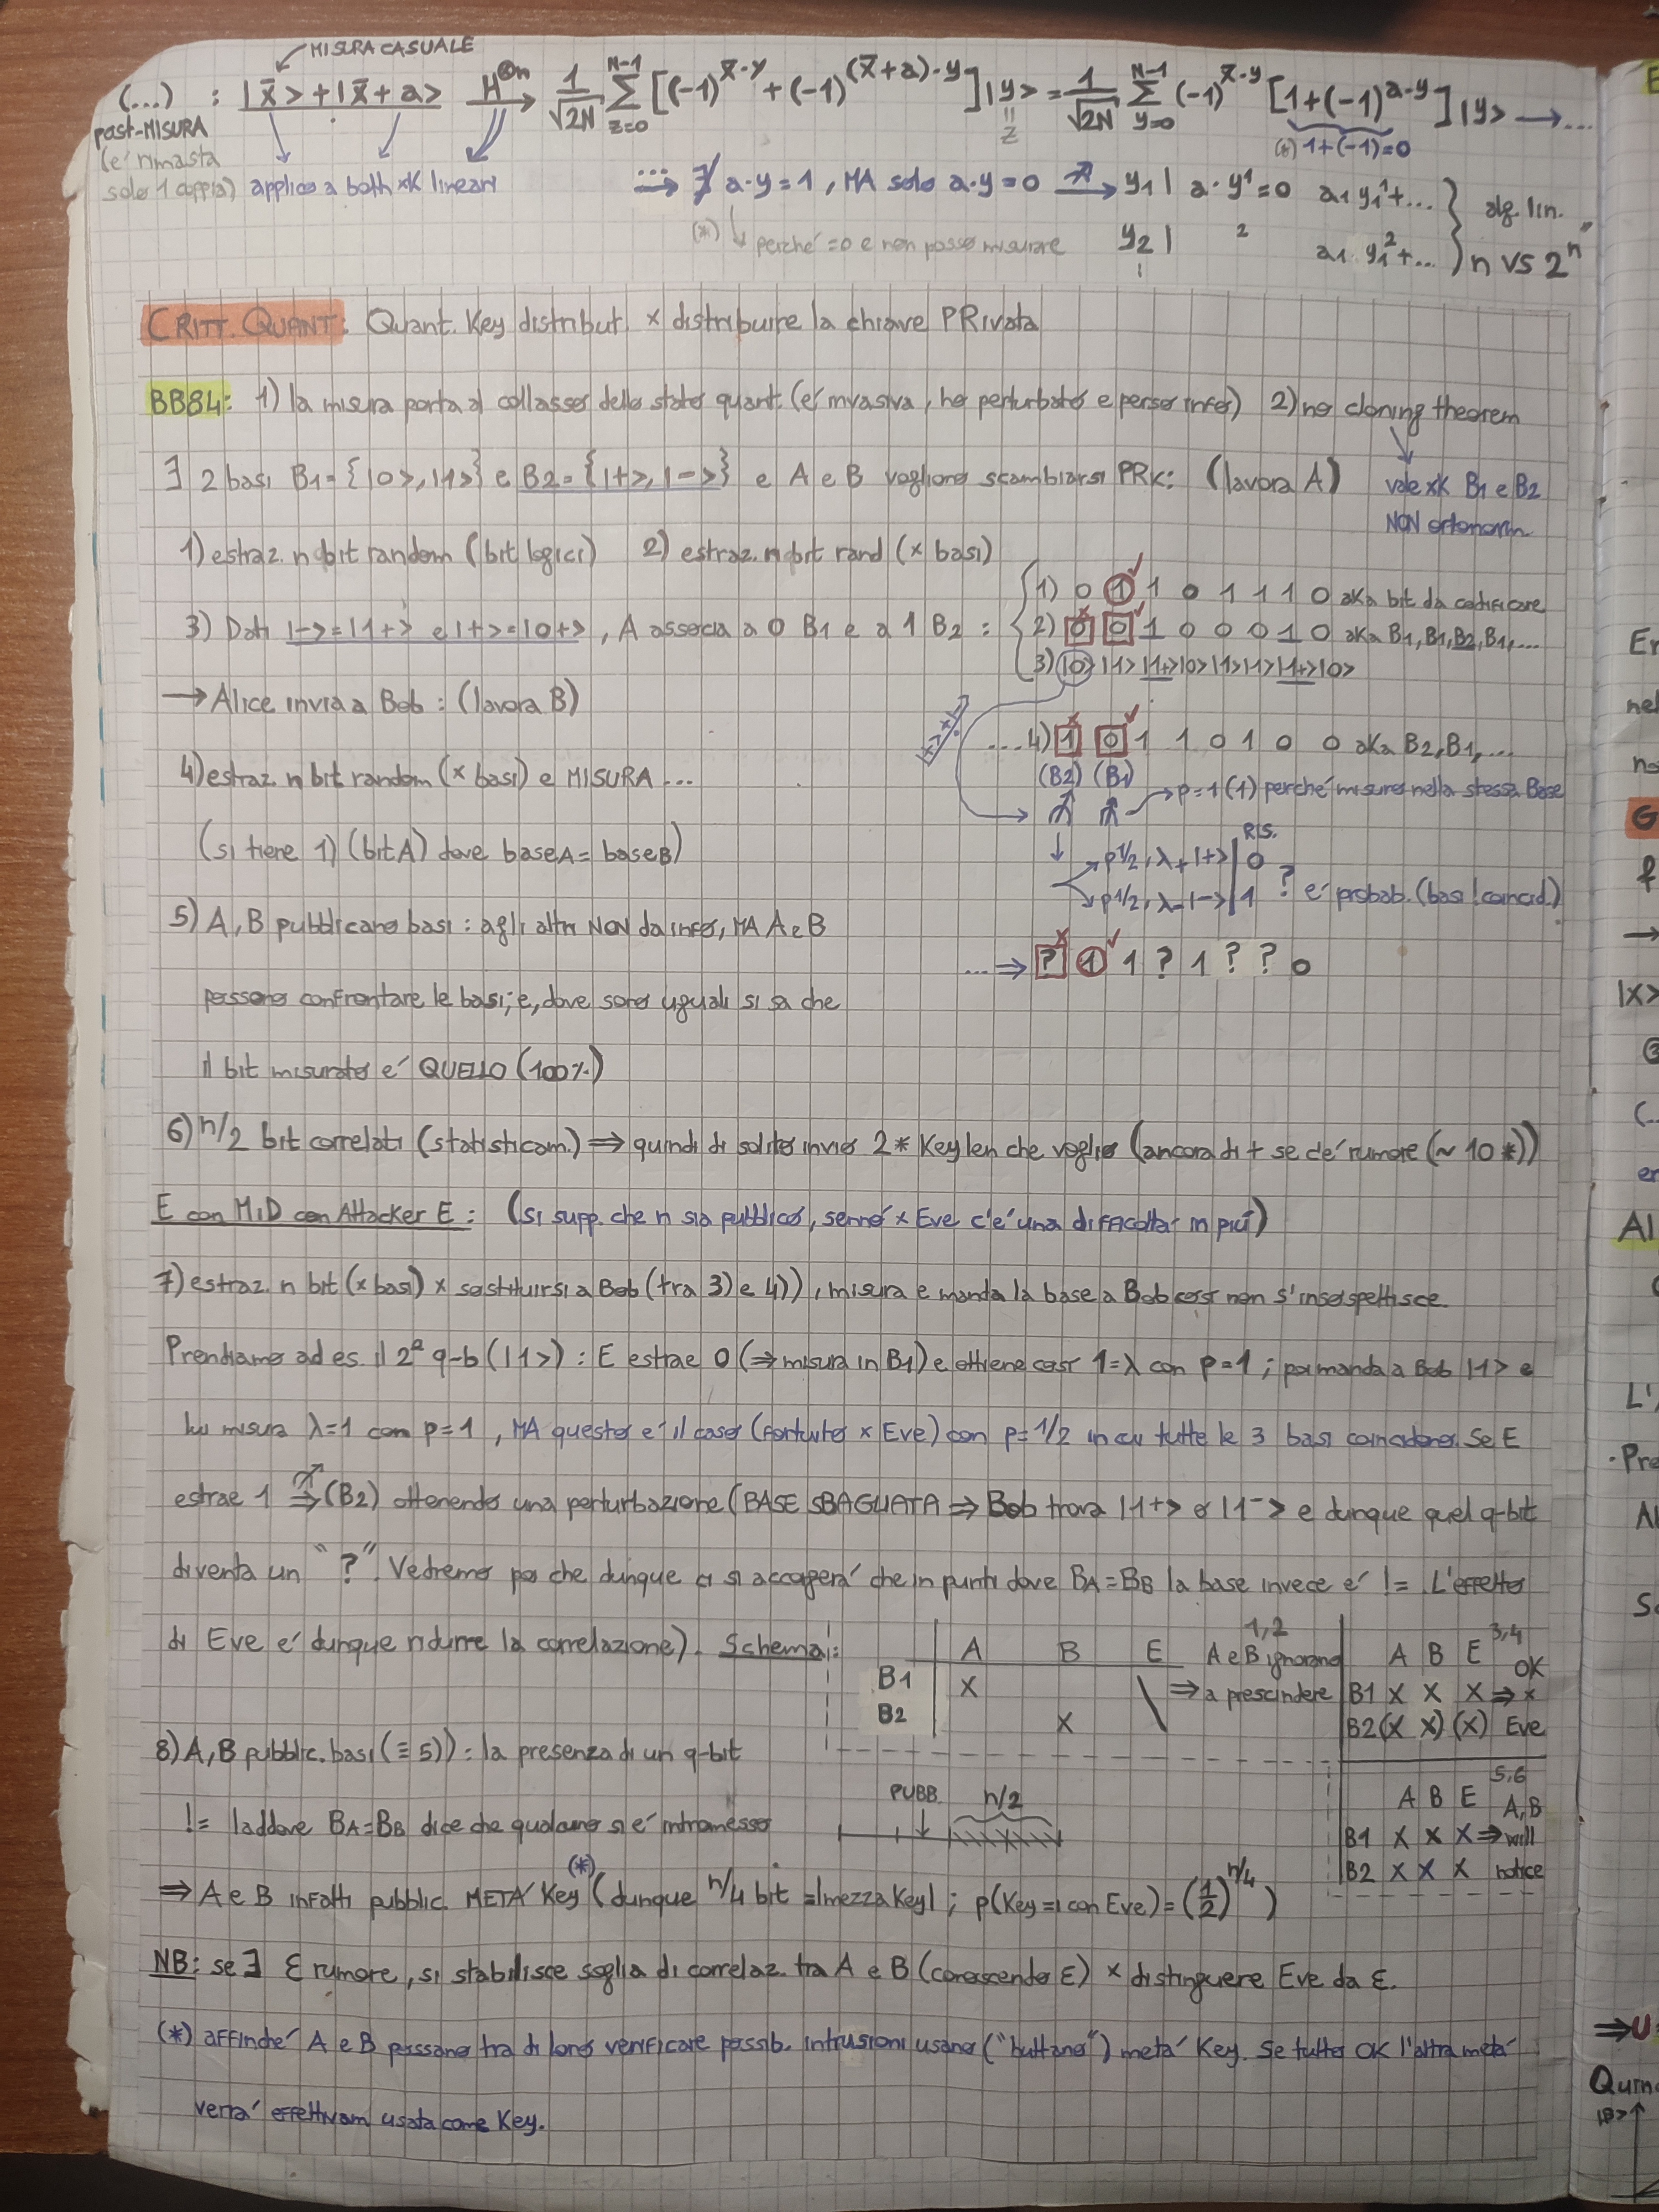 MISURA CASUALE
(...) : |x̄>+|x̄+a> H^⊗n → 1/√2N Σ_{z=0}^{N-1} [(-1)^{x̄·y} + (-1)^{(x̄+a)·y}] |y> = 1/√2N Σ_{y=0}^{N-1} (-1)^{x̄·y} [1+(-1)^{a·y}] |y> → ...
post-MISURA
(*) 1+(-1)=0
= z
(é rimasta
solo 1 coppia) applico a both xK lineari
... ⇒ ∄ a·y=1, MA solo a·y=0 → y1 | a·y¹=0 a1 y1¹+... } alg. lin.
(*) ↓ perché =0 e non posso misurare y2 | ² a1 y1²+... } n vs 2^n
CRITT. QUANT: Quant. Key distribut. x distribuire la chiave PRivata
BB84: 1) la misura porta al collasso dello stato quant. (é invasiva, ho perturbato e perso info) 2) no cloning theorem
∃ 2 basi B1={|0>,|1>} e B2={|+>,|->} e A e B vogliono scambiarsi PRK: (lavora A) vale xK B1 e B2
NON ortonorm.
1) estraz. n bit random (bit logici) 2) estraz. n bit rand (x basi)
1) 0 1 1 0 1 1 1 0 aka bit da codificare
3) Dati |->=|1+> e |+>=|0+>, A associa a 0 B1 e a 1 B2 : 2) 0 0 1 0 0 0 1 0 aka B1,B1,B2,B1,...
3) |0>|1>|1+>|0>|1>|1>|1+>|0>
→ Alice invia a Bob: (lavora B)
...4) 1 0 1 1 0 1 0 0 aka B2,B1,...
4) estraz. n bit random (x basi) e MISURA ...
(B2) (B1)
→ p=1 (1) perché misuro nella stessa Base
(si tiene 1) (bit A) dove base A = base B)
RIS.
p 1/2, λ+ |+> | 0
p 1/2, λ- |-> | 1 ? é probab. (basi !coincid.)
5) A, B pubblicano basi: agli altri NON da info, MA A e B
... ⇒ ? 1 1 ? 1 ? ? 0
possono confrontare le basi; e, dove sono uguali si sa che
il bit misurato é QUELLO (100%)
6) n/2 bit correlati (statisticam.) ⇒ quindi di solito invio 2*Keylen che voglio (ancora di + se c'é rumore (~ 10*))
E con MiD con Attacker E: (si supp. che n sia pubblico, sennó x Eve c'é una difficoltá in piú)
7) estraz. n bit (x basi) x sostituirsi a Bob (tra 3) e 4)), misura e manda la base a Bob cosí non s'insospettisce.
Prendiamo ad es. il 2° q-b (|1>): E estrae 0 (⇒ misura in B1) e ottiene cosí 1=λ con p=1; poi manda a Bob |1> e
lui misura λ=1 con p=1, MA questo é il caso (fortuito x Eve) con p=1/2 in cui tutte le 3 basi coincidono. Se E
estrae 1 ⇒ (B2) ottenendo una perturbazione (BASE SBAGLIATA ⇒ Bob trova |1+> o |1-> e dunque quel q-bit
diventa un "?". Vedremo poi che dunque ci si accorgerá che in punti dove BA=BB la base invece é !=. L'effetto
di Eve é dunque ridurre la correlazione). Schema:
A B E 1,2 A e B ignorano
B1 X ⇒ a prescindere
B2 X
A B E 3,4 OK
B1 X X X ⇒ x
B2 (X X) (X) Eve
8) A, B pubblic. basi (≡ 5)): la presenza di un q-bit
PUBB. n/2
A B E 5,6 A, B
!= laddove BA=BB dice che qualcuno si é intromesso
B1 X X X ⇒ will
B2 X X X notice
⇒ A e B infatti pubblic. METÁ Key (*) (dunque n/4 bit = |mezza Key| ; p(Key = con Eve) = (1/2)^{n/4})
NB: se ∃ ε rumore, si stabilisce soglia di correlaz. tra A e B (conoscendo ε) x distinguere Eve da ε.
(*) affinché A e B possano tra di loro verificare possib. intrusioni usano ("buttano") metá Key. Se tutto OK l'altra metá
verrá effettivam. usata come Key.